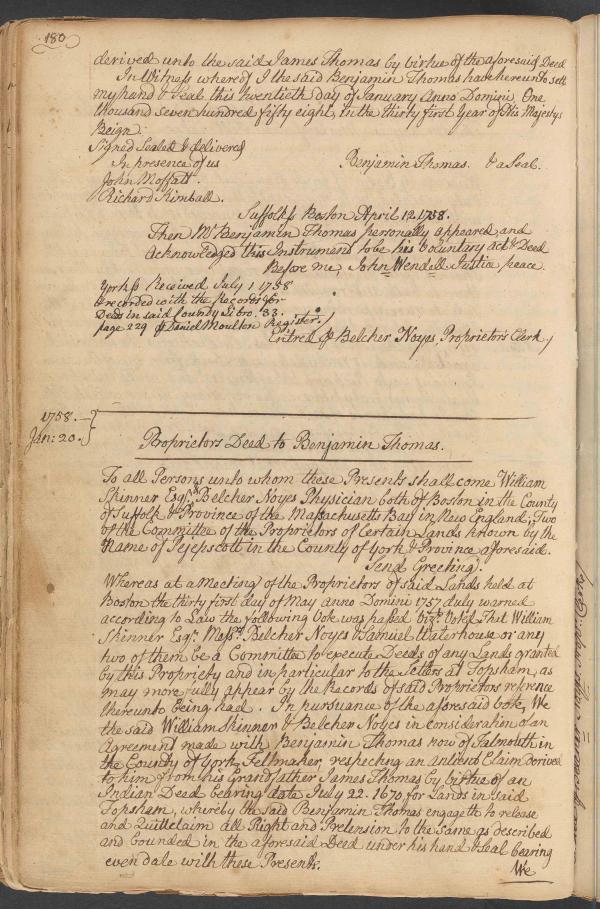 180
derived unto the said James Thomas by virtue of the aforesaid Deed
In Witness whereof I the said Benjamin Thomas have hereunto sett
my hand & Seal this twentieth day of January Anno Domini One
thousand seven hundred fifty eight, in the thirty first Year of His Majestys
Reign.
Signed Sealed & delivered
In presence of us Benjamin Thomas. & a Seal.
John Moffatt.
Richard Kimball.
Suffolk ss Boston April 12. 1758.
Then Mr Benjamin Thomas personally appeared, and
Acknowledged this Instrument to be his Voluntary act & Deed
Before me, John Wendell Justice peace.
York ss Received July 1 1758
& recorded with the Records for
Deeds in said County Libro. 33.
page 229 Daniel Moulton Register.
Entred Belcher Noyes, Proprietors Clerk
1758.
Jan: 20.
Proprietors Deed to Benjamin Thomas.
To all Persons unto whom these Presents shall come William
Skinner Esqr. & Belcher Noyes Physician both of Boston in the County
of Suffolk & Province of the Massachusetts Bay in New England, Two
of the Committee of the Proprietors of Certain Lands known by the
Name of Pejepscott in the County of York & Province aforesaid.
Send Greeting.
Whereas at a Meeting of the Proprietors of said Lands held at
Boston the thirty first day of May anno Domini 1757 duly warned
according to Law the following Vote was passed vizt. Voted That William
Skinner Esqr. Messrs. Belcher Noyes & Samuel Waterhouse or any
two of them be a Committee to execute Deeds of any Lands granted
by this Propriety and in particular to the Setlers at Topsham, as
may more fully appear by the Records of said Proprietors refrence
thereunto being had. In pursuance of the aforesaid Vote, We
the said William Skinner & Belcher Noyes in Consideration of an
Agreement made with Benjamin Thomas now of Falmouth in
the County of York, Fellmaker, respecting an antient Claim derived
to him from his Grandfather James Thomas by virtue of an
Indian Deed bearing date July 22. 1670 for Lands in said
Topsham, whereby the said Benjamin Thomas engageth to release
and Quittclaim all Right and Pretension to the same as described
and bounded in the aforesaid Deed under his hand & Seal bearing
even date with these Presents.
We